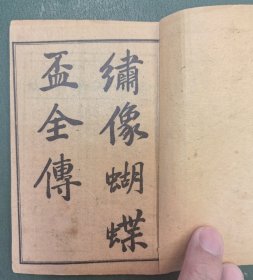 繡像蝴蝶
盃全傳